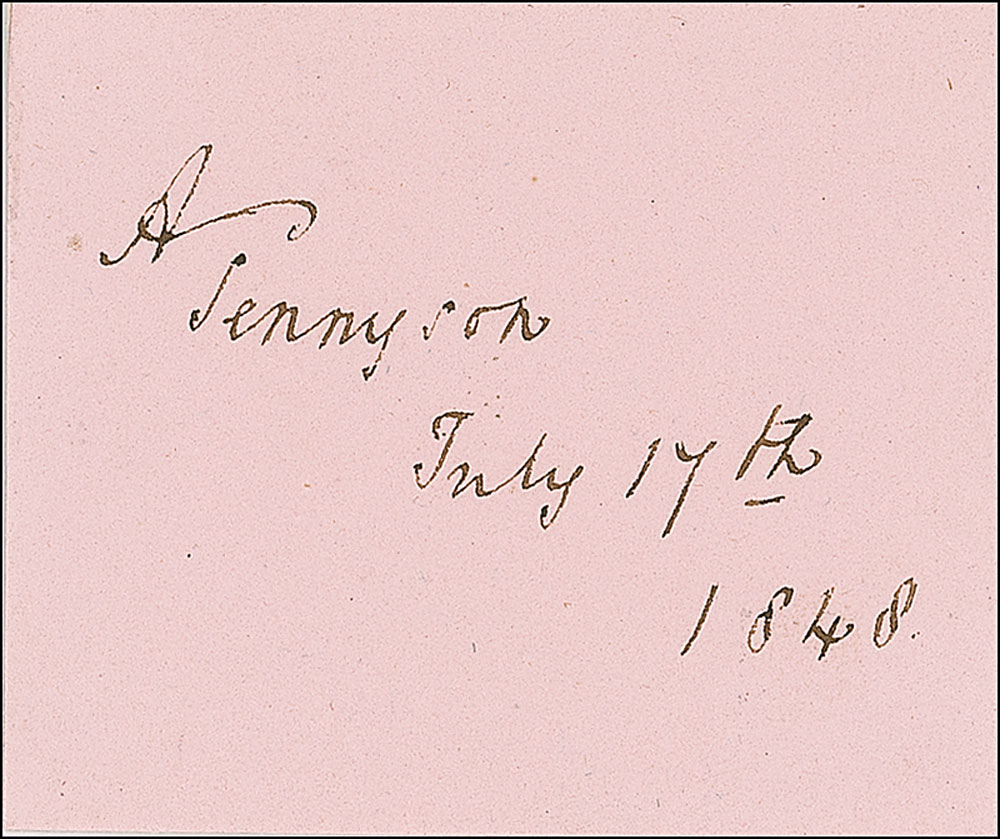 A
Tennyson
July 17th
1848.